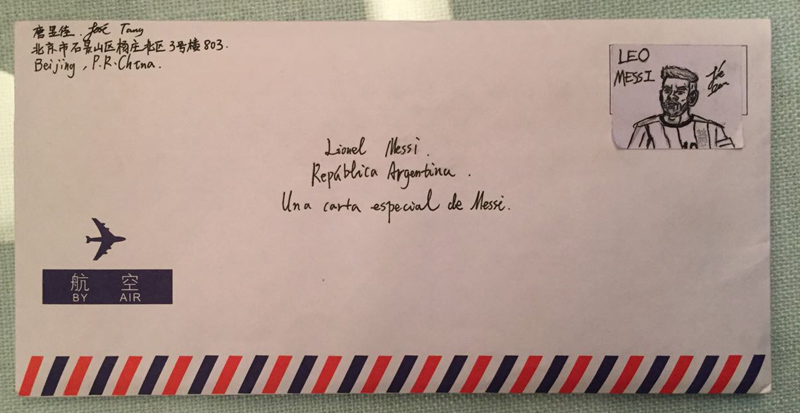 唐昱佳. José Tang
北京市石景山区杨庄北区3号楼803.
Beijing, P.R.China.
LEO
MESSI
Lionel Messi.
República Argentina.
Una carta especial de Messi.
航 空
BY AIR